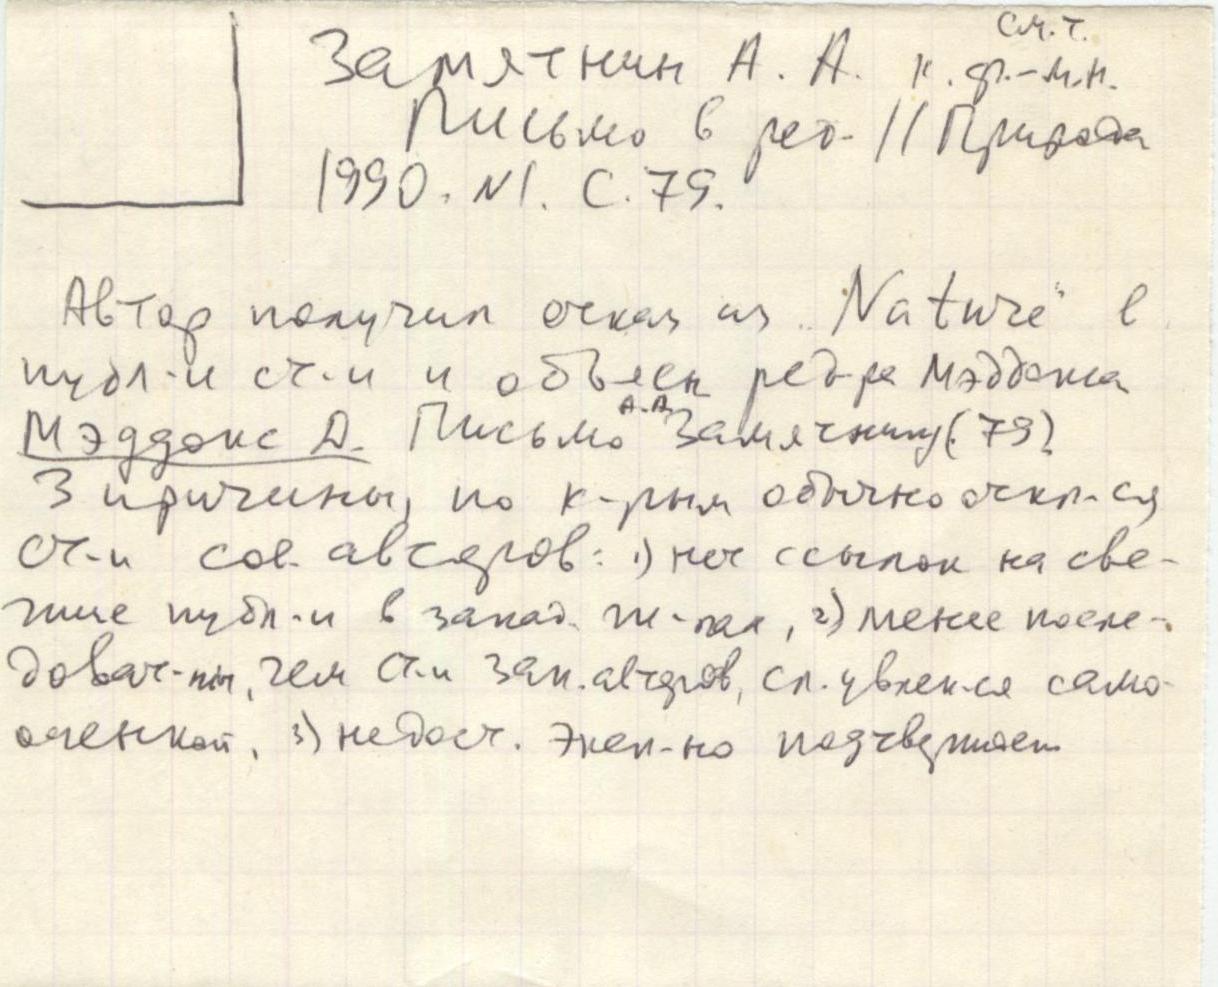 см. т.
Замятнин А. А. к. ф.-м.н.
Письмо в ред. // Природа
1990. N1. С. 79.
Автор получил отказ из "Nature" в
публ-и ст-и и объясн ред-ра Мэддокса
Мэддокс Д. Письмо А.А. Замятнину (79)
3 причины, по к-рым обычно откл-ся
ст-и сов. авторов: 1) нет ссылок на све-
жие публ-и в запад. ж-лах, 2) менее после-
доват-ны, чем ст-и зап. авторов, сл. увлек-ся само-
оценкой, 3) недост. эксп-но подтвержден